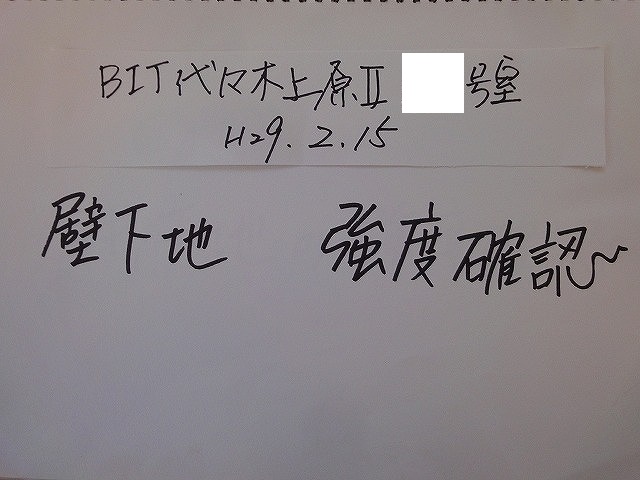 BIT代々木上原Ⅱ 号室
H29.2.15
壁下地 強度確認~